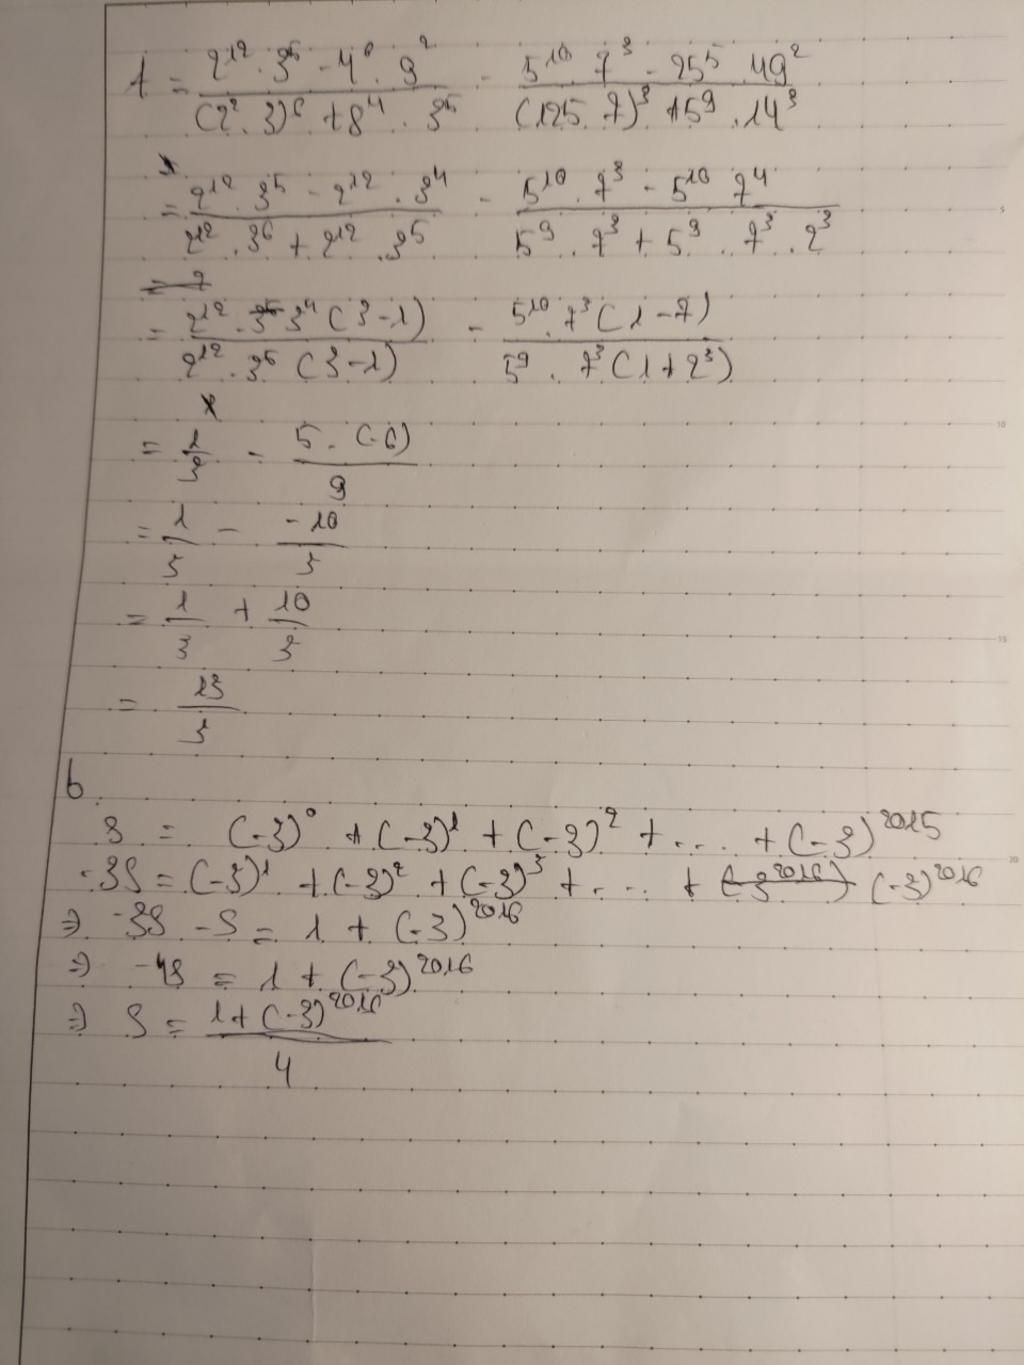 A = (2^12 . 3^5 - 4^6 . 9^2) / ((2^2 . 3)^6 + 8^4 . 3^5) - (5^10 . 7^3 - 25^5 . 49^2) / ((125 . 7)^3 + 5^9 . 14^3)
= (2^12 . 3^5 - 2^12 . 3^4) / (2^12 . 3^6 + 2^12 . 3^5) - (5^10 . 7^3 - 5^10 7^4) / (5^9 . 7^3 + 5^9 . 7^3 . 2^3)
= (2^12 . 3^4 (3-1)) / (2^12 . 3^5 (3-1)) - (5^10 . 7^3 (1-7)) / (5^9 . 7^3 (1+2^3))
= 1/3 - (5 . (-6)) / 9
= 1/3 - (-10)/3
= 1/3 + 10/3
= 13/3
b
S = (-3)^0 + (-3)^1 + (-3)^2 + ... + (-3)^2015
-3S = (-3)^1 + (-3)^2 + (-3)^3 + ... + (-3)^2016
=> -3S - S = 1 + (-3)^2016
=> -4S = 1 + (-3)^2016
=> S = (1 + (-3)^2016) / 4